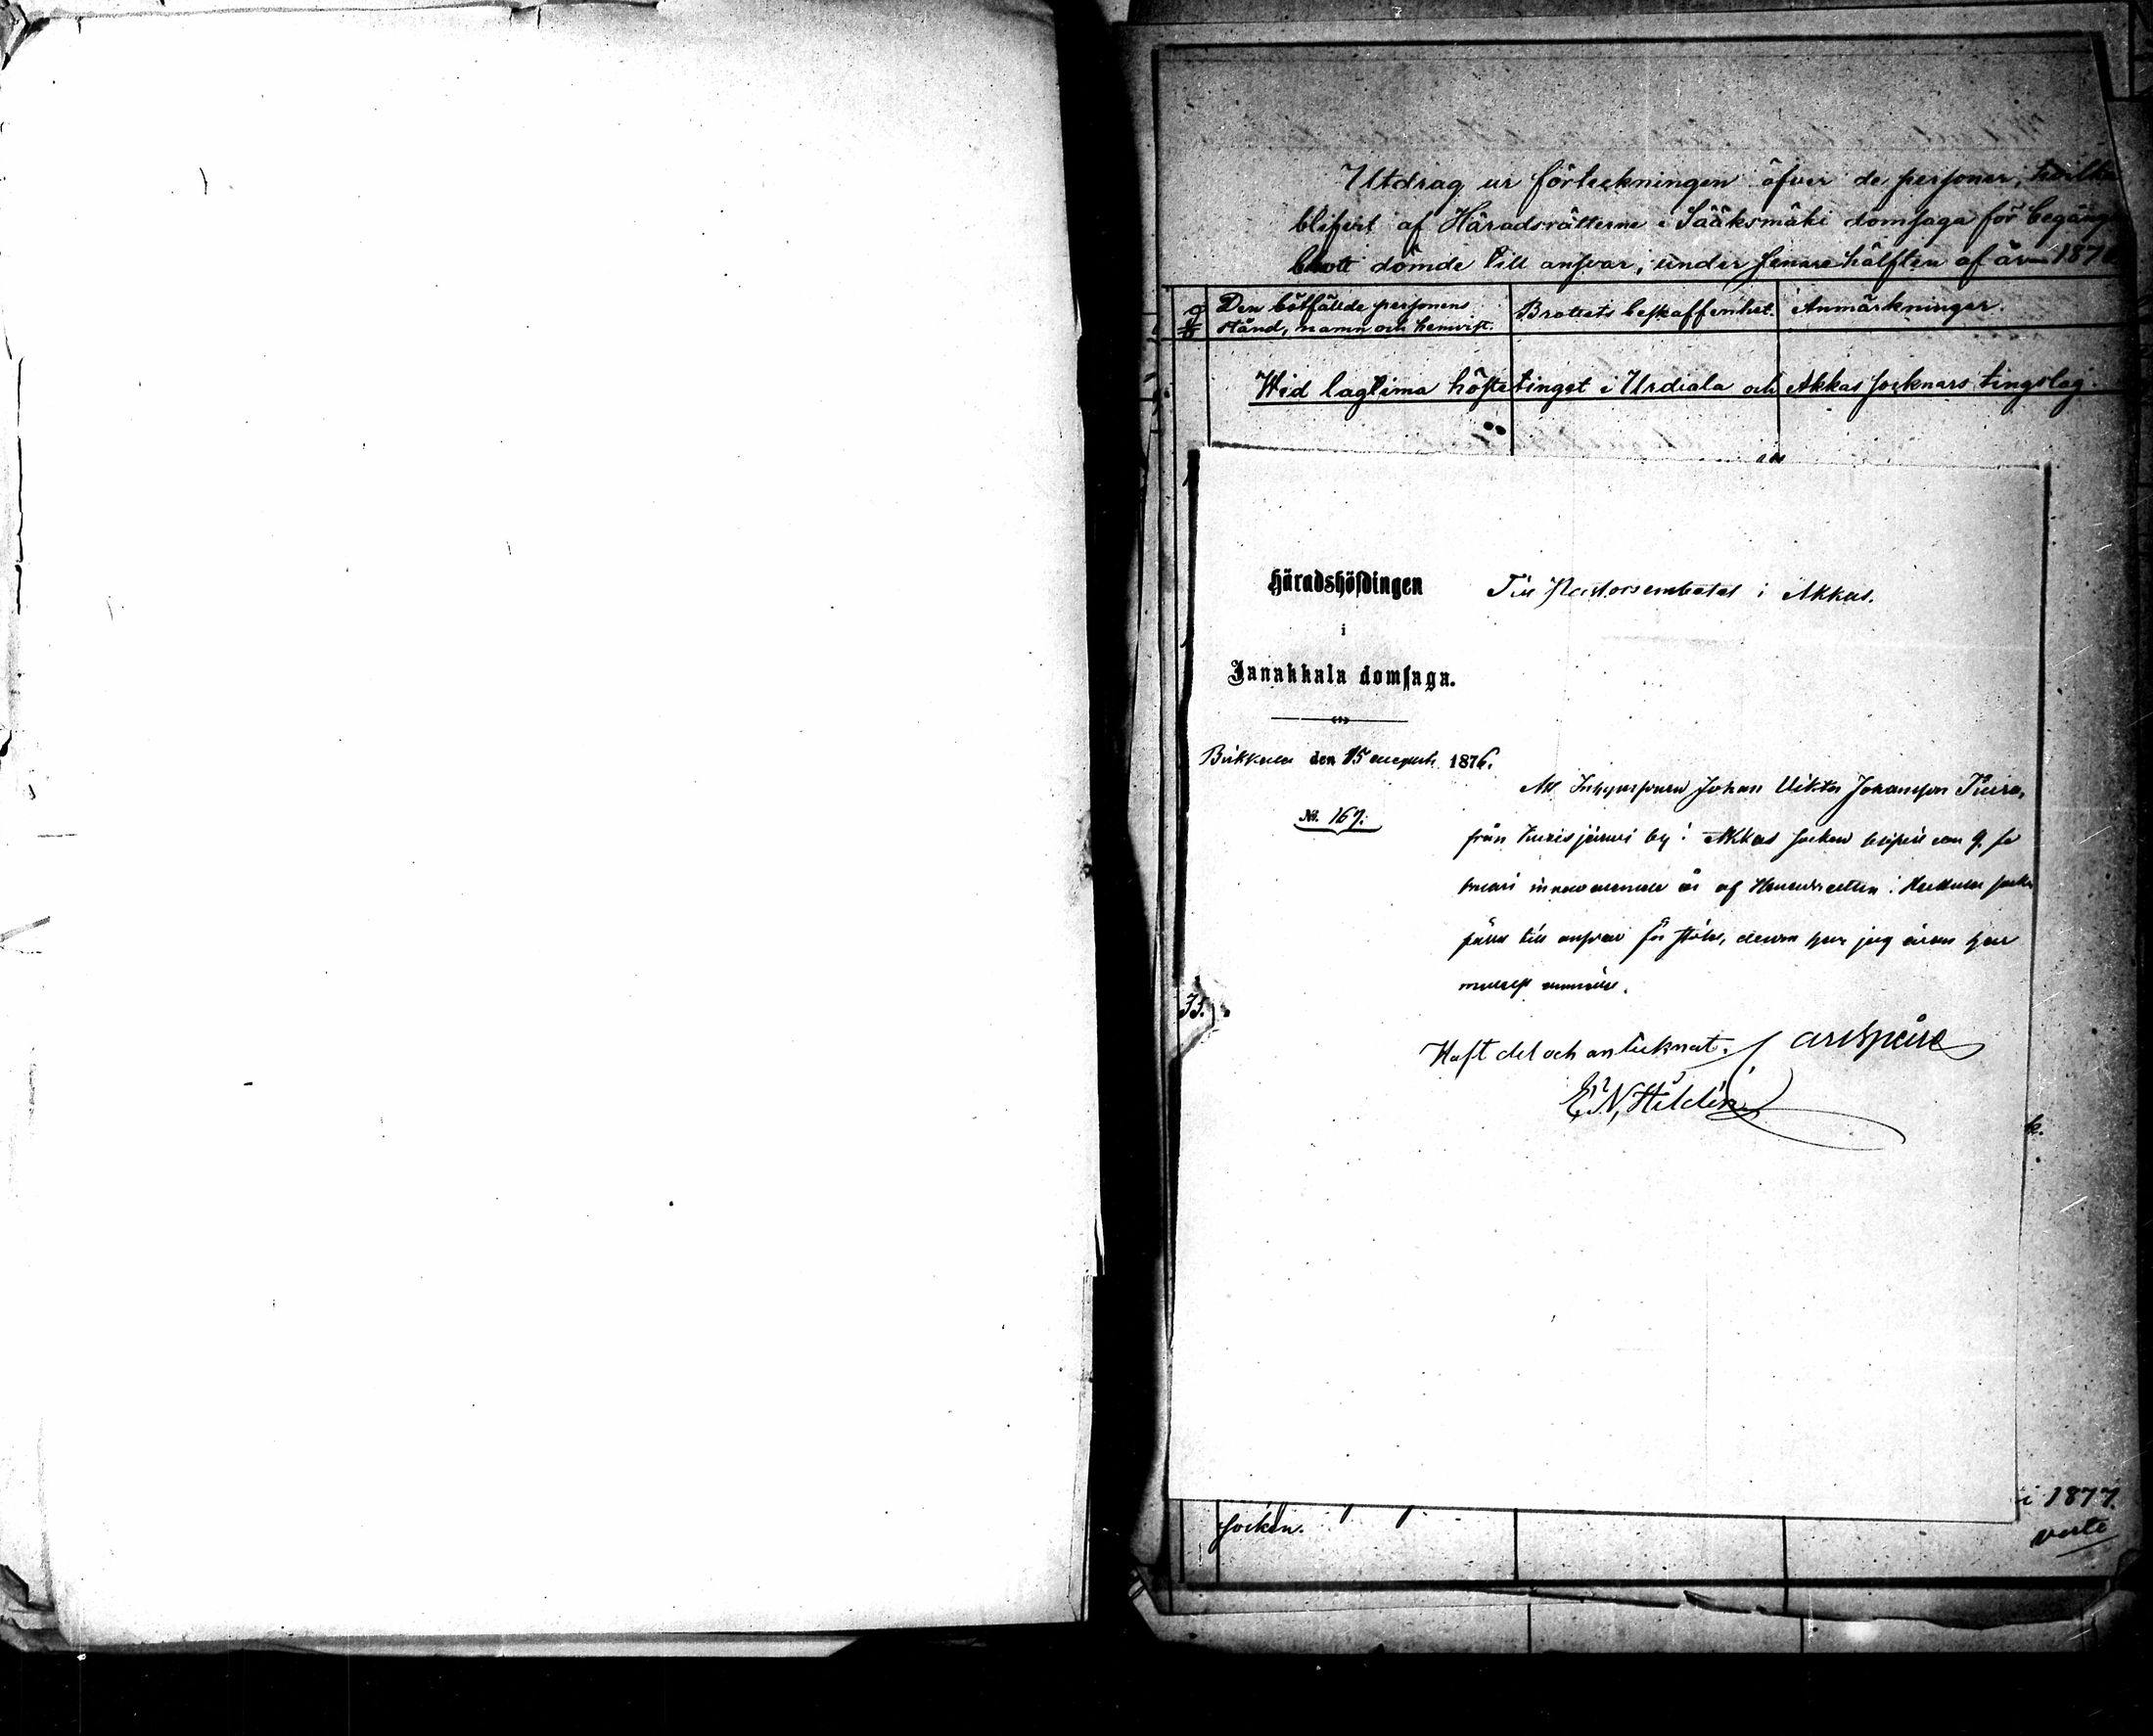 Utdrag ur förteckningen öfver de personer, hvilka
blifvit af Häradsrätterne i Sääksmäki domsaga för begångn
brott dömde till ansvar, under senare hälften af år 187
Den bötfällde personens
stånd, namn och hemvist.
Brottets beskaffenhet.
Anmärkningar.
Wid lagtima höstetinget i Urdiala och Akkas socknars tingslag.
Häradshöfdingen
i
Janakkala domsaga.
den 15 augusti 1876.
No. 167.
Till Pastorsembetet i Akkas.
Att Johan Viktor Johansson
från by i Akkas socken blifvit den 9 fe
bruari innevarande år af Häradsrätten i socken
fälld till ansvar för stöld, derom har jag äran här
medelst
Haft del och antecknat.
E. N. Hildén
35.
k.
socken.
i 1877.
verte